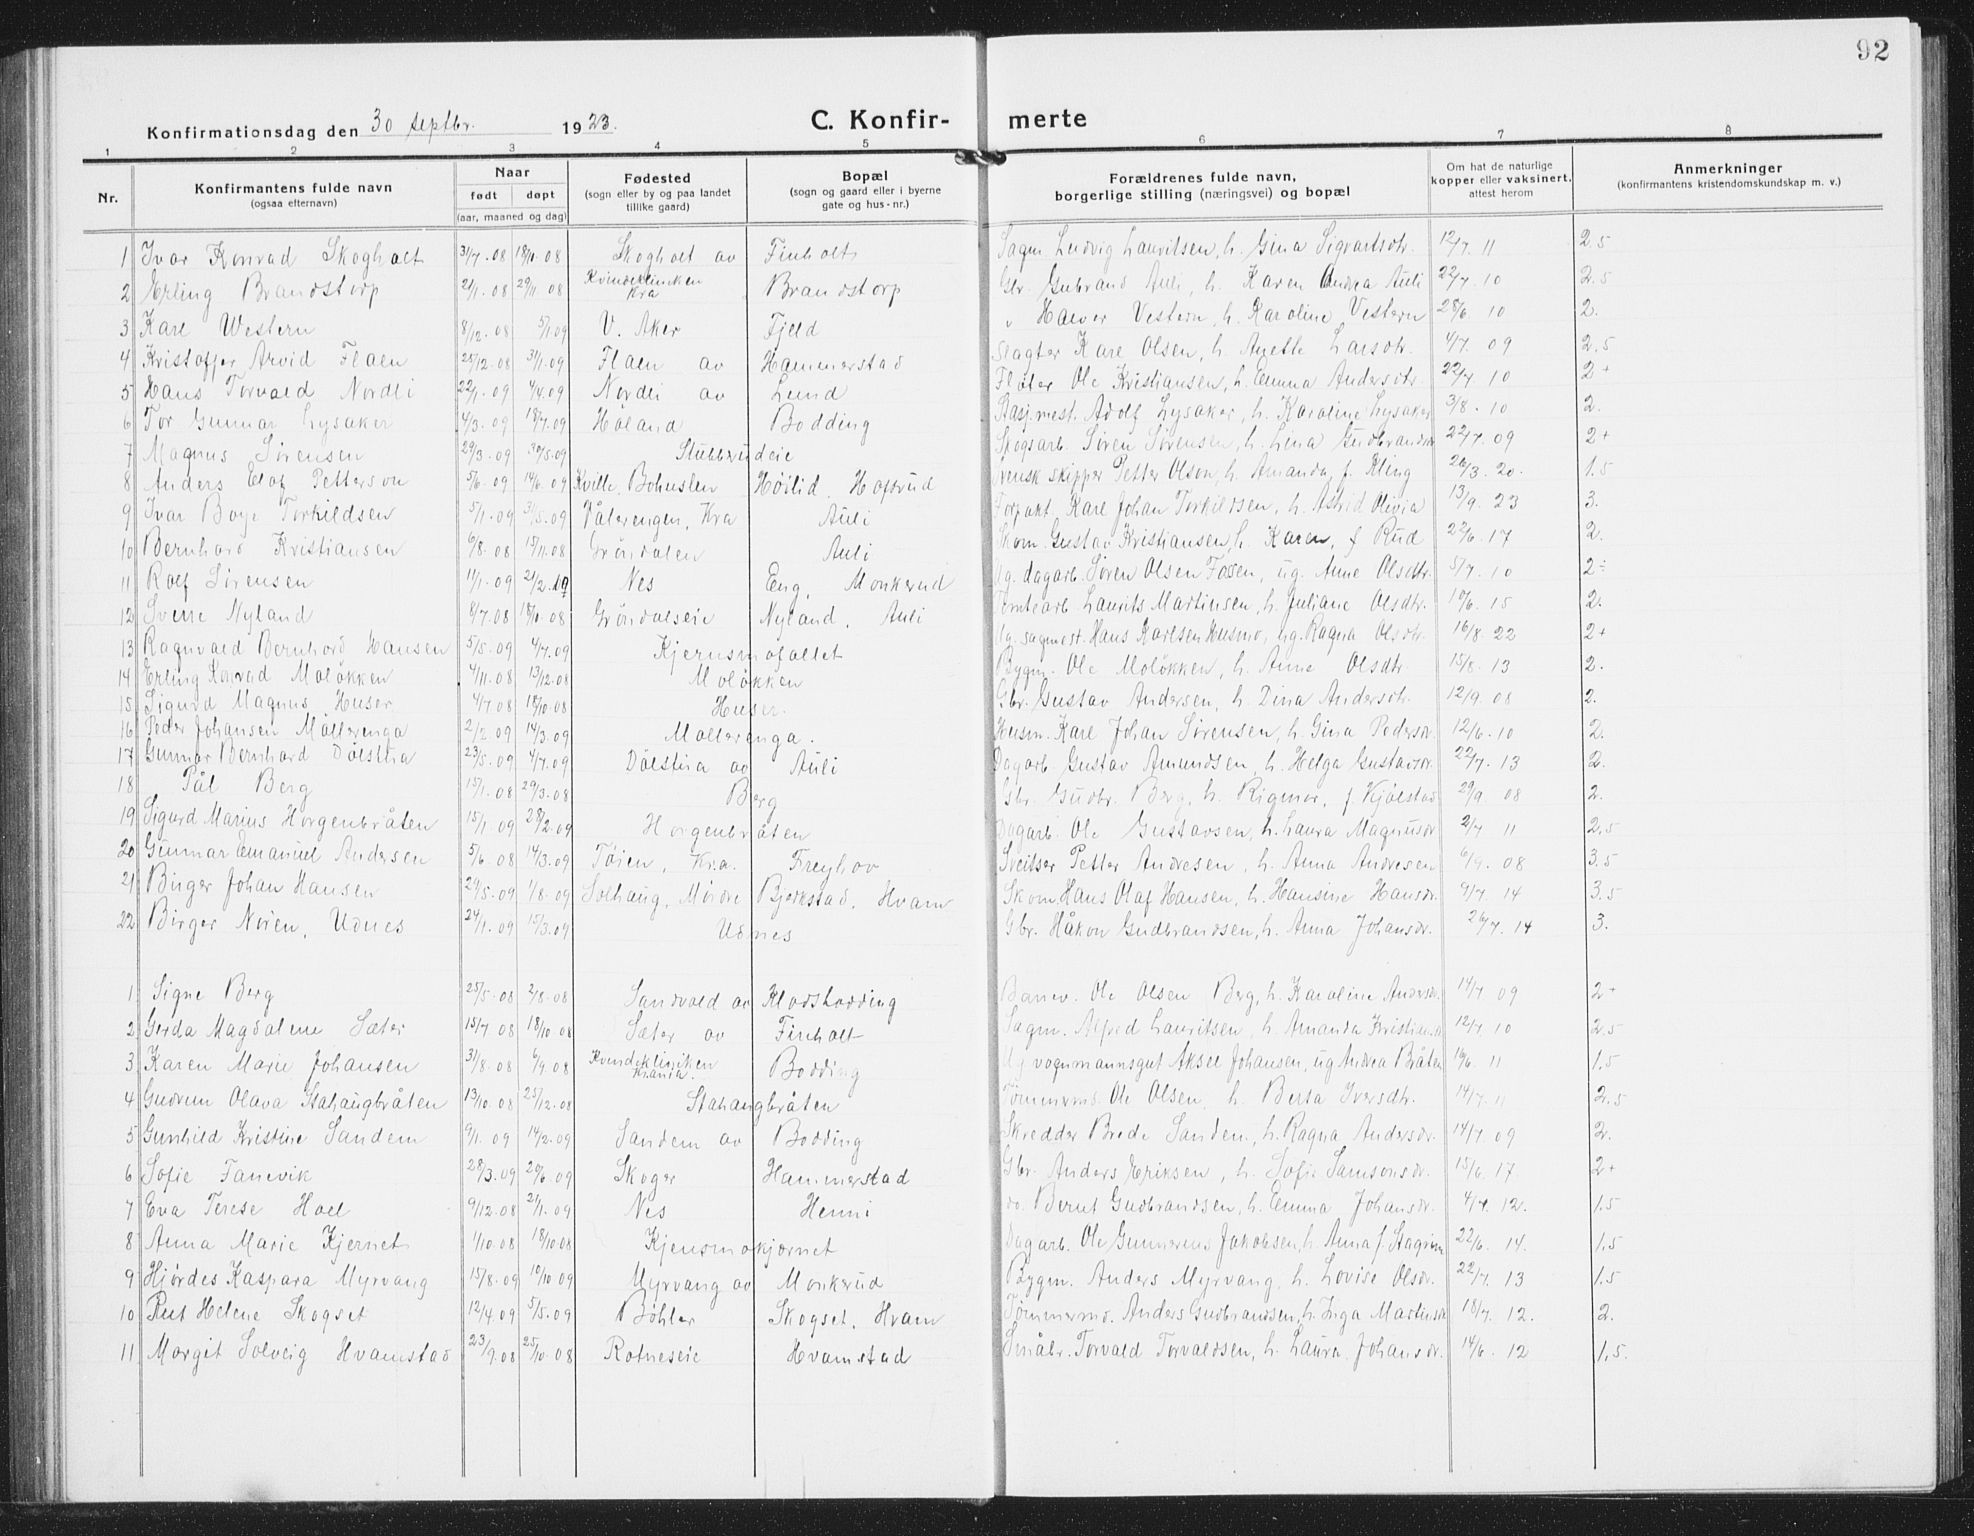 92
Konfirmationsdag den 30 septbr. 1923. C. Konfir- merte
1 2 3 4 5 6 7 8
Nr. Konfirmantens fulde navn (ogsaa efternavn) Naar født døpt (aar, maaned og dag) Fødested (sogn eller by og paa landet tillike gaard) Bopæl (sogn og gaard eller i byerne gate og hus-nr.) Forældrenes fulde navn, borgerlige stilling (næringsvei) og bopæl Om hat de naturlige kopper eller vaksinert, attest herom Anmerkninger (konfirmantens kristendomskundskap m. v.)
1 Ivar Konrad Skogholt 31/7.08 18/10.08 Skogholt av Finholt Sagm. Ludvig Lauritsen, h. Gina Sigvartsdtr. 12/7 11 2.5
2 Erling Brandstorp 2/11.08 29/11 08 Kvindeklinikken Kra Brandstorp Gbr. Gubrand Auli, h. Karen Andrea Auli 22/7. 10 2.5
3 Karl Western 8/12.08 5/1 09 V. Aker Fjeld " Halvor Vestern, h. Karoline Vestern 28/6. 10 2.
4 Kristoffer Arvid Flaen 25/12.08 31/1.09 Flaen av Hammerstad Slagter Karl Olsen, h. Anette Larsdtr. 4/7. 09 2.5
5 Hans Torvald Nordli 22/1.09 4/4.09 Nordli av Lund Fløter Ole Kristiansen, h. Emma Andersdtr. 22/7. 10 2+
6 Tor Gunnar Lysaker 4/3.09 18/7.09 Høland Bodding Stasj.mest. Adolf Lysaker, h. Karoline Lysaker 3/8. 10 2.
7 Magnus Sørensen 29/3.09 30/5.09 Stubberudeie Skogsarb. Søren Sørensen, h. Lina Gudbrandsdr. 22/7. 09 2+
8 Anders Elof Petterson 5/6.09 14/6.09 Kville, Bohuslen Høilid, Hofsrud Svensk skipper Petter Olson, h. Amanda, f. Kling 26/3. 20. 1.5
9 Ivar Boye Torkildsen 5/1.09 31/5.09 Vålerengen, Kra Auli Forpakt. Karl Johan Torkildsen, h. Astrid Olivia 13/9. 23 3.
10 Bernhard Kristiansen 6/8.08 15/11.08 Grøndalen Auli Skom. Gustav Kristiansen, h. Karen, f Rud 22/6. 17 2.
11 Rolf Sørensen 11/1.09 21/2.09 Nes Eng, Monkerud Ug. dagarb. Søren Olsen Fossen, ug. Anne Olsdtr. 5/7. 10 2÷
12 Sverre Nyland 8/7.08 18/10.08 Grøndalseie Nyland, Auli Tomtearb. Laurits Martinsen, h. Juliane Olsdtr. 10/6. 15 2.
13 Ragnvald Bernhard Hansen 5/5.09 4/7.09 Kjernsmofallet Ug. sagmest. Hans Karlsen Husmo, ug. Ragna Olsdtr. 16/8. 22 2+
14 Erling Konrad Moløkken 4/11.08 13/12.08 Moløkken Bygm. Ole Moløkken, h. Anne Olsdtr. 15/8. 13 2.
15 Sigurd Magnus Huser 4/7 08 18/10.08 Huser. Gbr. Gustav Andersen, h. Dina Andersdtr. 12/9. 08 2.
16 Peder Johansen Møllerenga 2/2 09 14/3.09 Møllerenga. Husm. Karl Johan Sørensen, h. Gina Pedersdr. 12/6. 10 2.
17 Gunnar Bernhard Dølstua 23/5.09 4/7.09 Dølstua av Auli Dagarb. Gustav Amundsen, h. Helga Gustavsdr. 22/7. 13 2.
18 Pål Berg 15/1.08 29/3.08 Berg Gbr. Gudbr. Berg, h. Rigmor, f. Kjølstad 29/9. 08 2.
19 Sigurd Marius Horgenbråten 15/1.09 28/2.09 Horgenbråten Dagarb. Ole Gustavsen, h. Laura Magnusdr 2/7 11 2.5
20 Gunnar Emanuel Andersen 5/6.08 14/3.09 Tøien, Kra. Freyhov Sveitser Petter Andresen, h. Anna Andresen 6/9. 08 3.5
21 Birger Johan Hansen 29/5.09 1/8.09 Solhaug, Mørdre Bjerkstad, Hvam Skom. Hans Olaf Hansen, h. Hansine Hansdr. 9/7. 14 3.5
22 Birger Noren, Udnes 24/1.09 15/3.09 Udnes Gbr. Håkon Gudbrandsen, h. Anna Johansdr. 26/7. 14 3.
1 Signe Berg 25/5.08 2/8.08 Sandvold av Klodsbodding Banev. Ole Olsen Berg, h. Karoline Andersdr. 14/7 09 2+
2 Gerda Magdalene Sæter 15/7 08 18/10.08 Sæter av Finholt Sagm. Alfred Lauritsen, h. Amanda Kristiansdr 12/7. 10 2.5
3 Karen Marie Johansen 31/8.08 6/9.08 Kvindeklinikken Krania. Bodding Ug vognmannsgut Aksel Johansen, ug Andrea Bråten 16/6. 11 1.5
4 Gudrun Olava Stahaugbråten 13/10.08 25/12.08 Stahaugbråten Tømmerms. Ole Olsen, h. Berta Iversdtr. 14/7. 11 2.5
5 Gunhild Kristine Sandem 9/1.09 14/2.09 Sandem av Bodding Skredder Brede Sandem, h. Ragna Andersdr. 14/7. 09 2.
6 Sofie Fanevik 28/3.09 20/6 09 Skoger Hammerstad Gbr. Anders Eriksen, h. Sofie Samsonsdr. 15/6. 17 2+
7 Eva Terese Hoel 9/12.08 21/1.09 Nes Henni do. Bernt Gudbrandsen, h. Emma Johansdr. 4/7. 12. 1.5
8 Anna Marie Kjernet 1/10.08 18/10.08 Kjensmokjærnet Dagarb. Ole Gunnerius Jakobsen, h. Anna f. Stagrim 22/6. 14. 1.5
9 Hjørdes Kaspara Myrvang 15/8.09 10/10 09 Myrvang av Monkerud Bygm. Anders Myrvang, h. Lovise Olsdr. 22/7. 13 1.5
10 Rut Helene Skogset 12/4.09 5/5.09 Bøhler Skogset, Hvam Tømmerms. Anders Gudbrandsen, h. Inga Martinsdr 18/7. 12. 2.
11 Margit Solveig Hvamstad 23/9.08 25/10.08 Rotneseie Hvamstad Småbr. Torvald Torvaldsen, h. Laura Johansdr. 14/6. 12 1.5.